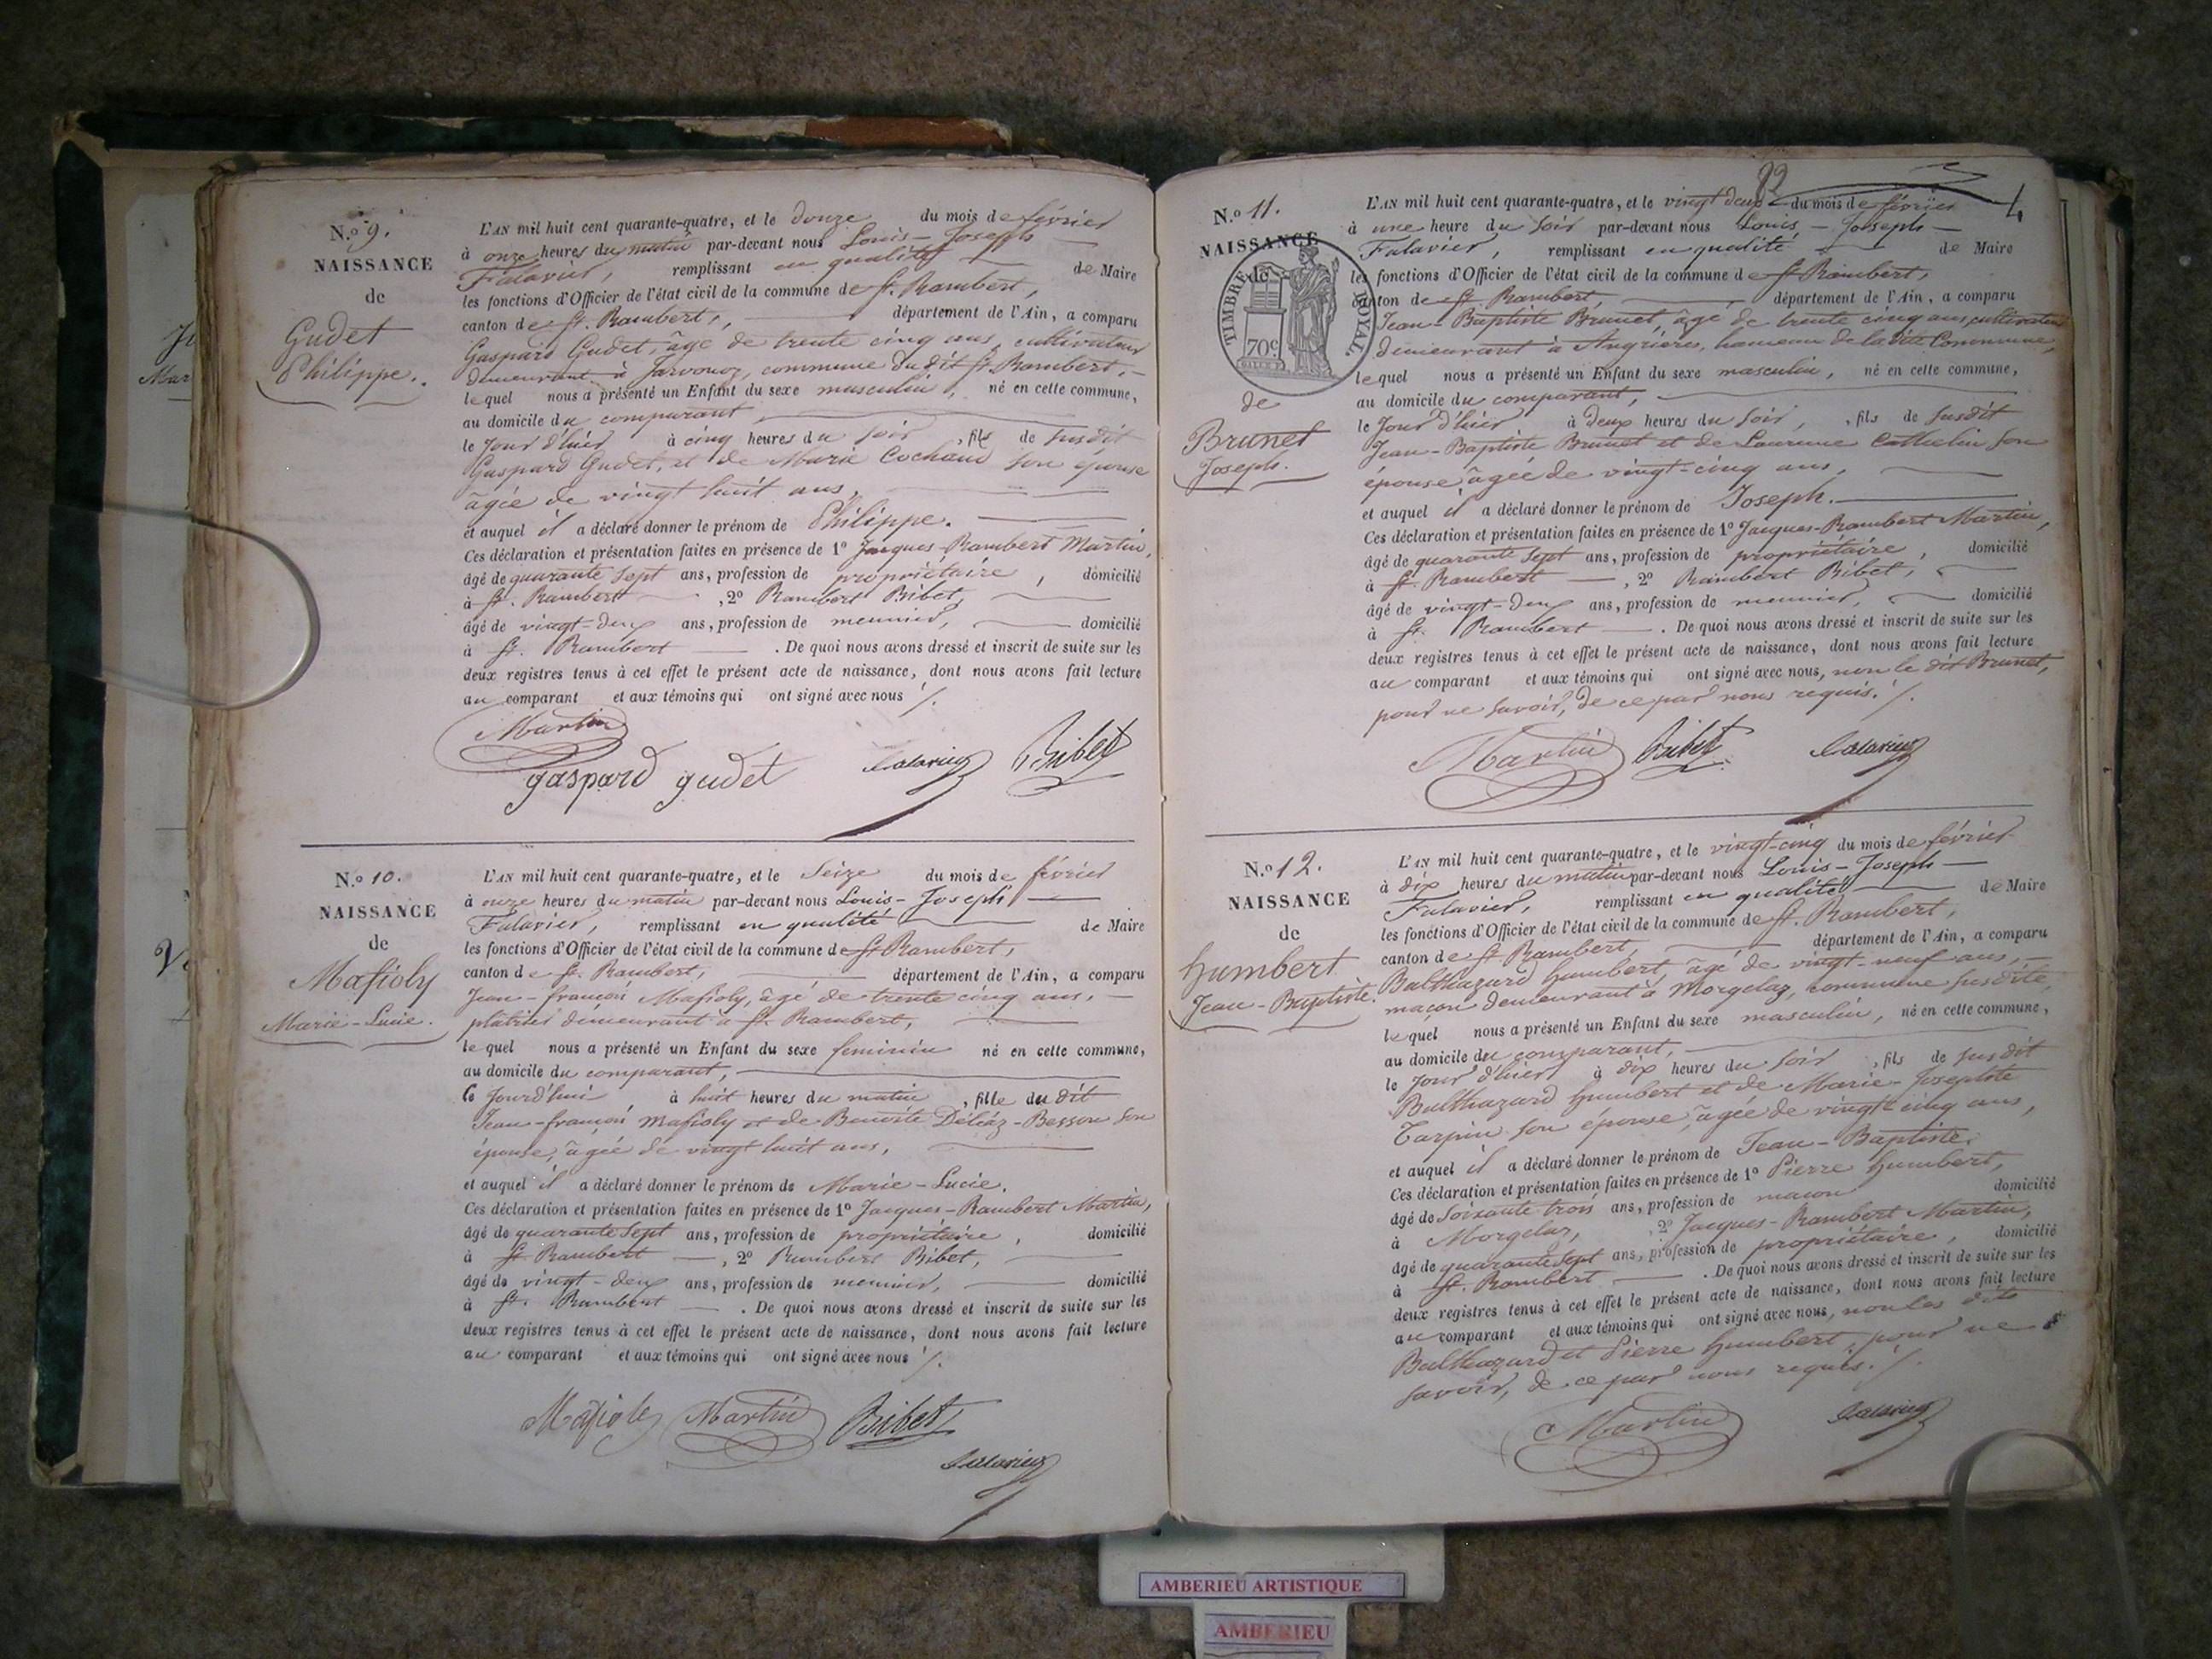 N.º 9.
NAISSANCE
de
Gudet
Philippe.
L'AN mil huit cent quarante-quatre, et le douze du mois de février
à onze heures du matin par-devant nous Louis-Joseph
Falavier, remplissant en qualité de Maire
les fonctions d'Officier de l'état civil de la commune de St. Rambert,
canton de St. Rambert, département de l'Ain, a comparu
Gaspard Gudet, âgé de trente cinq ans, cultivateur
demeurant à Javonoz, commune du dit St. Rambert,
lequel nous a présenté un Enfant du sexe masculin, né en cette commune,
au domicile du comparant,
le jour d'hier à cinq heures du soir, fils de susdit
Gaspard Gudet, et de Marie Cochaud son épouse
âgée de vingt huit ans,
et auquel il a déclaré donner le prénom de Philippe.
Ces déclaration et présentation faites en présence de 1º Jacques-Rambert Martin,
âgé de quarante sept ans, profession de propriétaire, domicilié
à St. Rambert, 2º Rambert Bibet,
âgé de vingt-deux ans, profession de meunier, domicilié
à St. Rambert. De quoi nous avons dressé et inscrit de suite sur les
deux registres tenus à cet effet le présent acte de naissance, dont nous avons fait lecture
au comparant et aux témoins qui ont signé avec nous ./.
Martin
gaspard gudet Falavier Bibet
N.º 10.
NAISSANCE
de
Mafioly
Marie-Lucie.
L'AN mil huit cent quarante-quatre, et le Seize du mois de février
à onze heures du matin par-devant nous Louis-Joseph
Falavier, remplissant en qualité de Maire
les fonctions d'Officier de l'état civil de la commune de St Rambert,
canton de St. Rambert, département de l'Ain, a comparu
Jean-françois Mafioly, âgé de trente cinq ans,
plâtrier demeurant à St. Rambert,
lequel nous a présenté un Enfant du sexe feminin né en cette commune,
au domicile du comparant,
ce jourd'hui, à huit heures du matin, fille du dit
Jean-françois Mafioly et de Benoite Déléaz-Besson son
épouse, âgée de vingt huit ans,
et auquel il a déclaré donner le prénom de Marie-Lucie.
Ces déclaration et présentation faites en présence de 1º Jacques-Rambert Martin,
âgé de quarante sept ans, profession de propriétaire, domicilié
à St Rambert, 2º Rambert Bibet,
âgé de vingt-deux ans, profession de meunier, domicilié
à St. Rambert. De quoi nous avons dressé et inscrit de suite sur les
deux registres tenus à cet effet le présent acte de naissance, dont nous avons fait lecture
au comparant et aux témoins qui ont signé avec nous ./.
Mafioly Martin Bibet
Falavier
82
4
N.º 11.
NAISSANCE
de
TIMBRE ROYAL
70 c.
de
Brunet
Joseph.
L'AN mil huit cent quarante-quatre, et le vingt deux du mois de février
à une heure du soir par-devant nous Louis-Joseph
Falavier, remplissant en qualité de Maire
les fonctions d'Officier de l'état civil de la commune de St Rambert,
canton de St. Rambert, département de l'Ain, a comparu
Jean-Baptiste Brunet, âgé de trente cinq ans cultivateur
demeurant à Angrieres, hameau de la dite Commune,
lequel nous a présenté un Enfant du sexe masculin, né en cette commune,
au domicile du comparant,
le jour d'hier à deux heures du soir, fils de susdit
Jean-Baptiste Brunet et de Laurence Cathelin son
épouse âgée de vingt-cinq ans,
et auquel il a déclaré donner le prénom de Joseph.
Ces déclaration et présentation faites en présence de 1º Jacques-Rambert Martin,
âgé de quarante sept ans, profession de propriétaire, domicilié
à St. Rambert, 2º Rambert Bibet,
âgé de vingt-deux ans, profession de meunier, domicilié
à St. Rambert. De quoi nous avons dressé et inscrit de suite sur les
deux registres tenus à cet effet le présent acte de naissance, dont nous avons fait lecture
au comparant et aux témoins qui ont signé avec nous, non le dit Brunet,
pour ne savoir, de ce par nous requis. ./.
Martin Bibet Falavier
N.º 12.
NAISSANCE
de
humbert
Jean-Baptiste.
L'AN mil huit cent quarante-quatre, et le vingt-cinq du mois de février
à dix heures du matin par-devant nous Louis-Joseph
Falavier, remplissant en qualité de Maire
les fonctions d'Officier de l'état civil de la commune de St. Rambert,
canton de St Rambert, département de l'Ain, a comparu
Balthazard humbert, âgé de vingt-neuf ans,
maçon demeurant à Morgelaz, commune susdite,
lequel nous a présenté un Enfant du sexe masculin, né en cette commune,
au domicile du comparant,
le jour d'hier à dix heures du soir, fils de susdit
Balthazard humbert et de Marie-Josephte
Tarpin son épouse, âgée de vingt cinq ans,
et auquel il a déclaré donner le prénom de Jean-Baptiste.
Ces déclaration et présentation faites en présence de 1º Pierre humbert,
âgé de Soixante trois ans, profession de maçon domicilié
à Morgelaz, 2º Jacques-Rambert Martin,
âgé de quarante sept ans, profession de propriétaire, domicilié
à St. Rambert. De quoi nous avons dressé et inscrit de suite sur les
deux registres tenus à cet effet le présent acte de naissance, dont nous avons fait lecture
au comparant et aux témoins qui ont signé avec nous, non les dits
Balthazard et Pierre humbert, pour ne
savoir, de ce par nous requis. ./.
Martin Falavier
AMBERIEU ARTISTIQUE
AMBERIEU